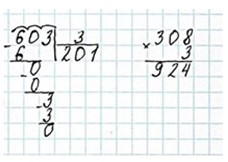 603 3 308
- 6 201 × 3
-0 924
0
-3
3
0